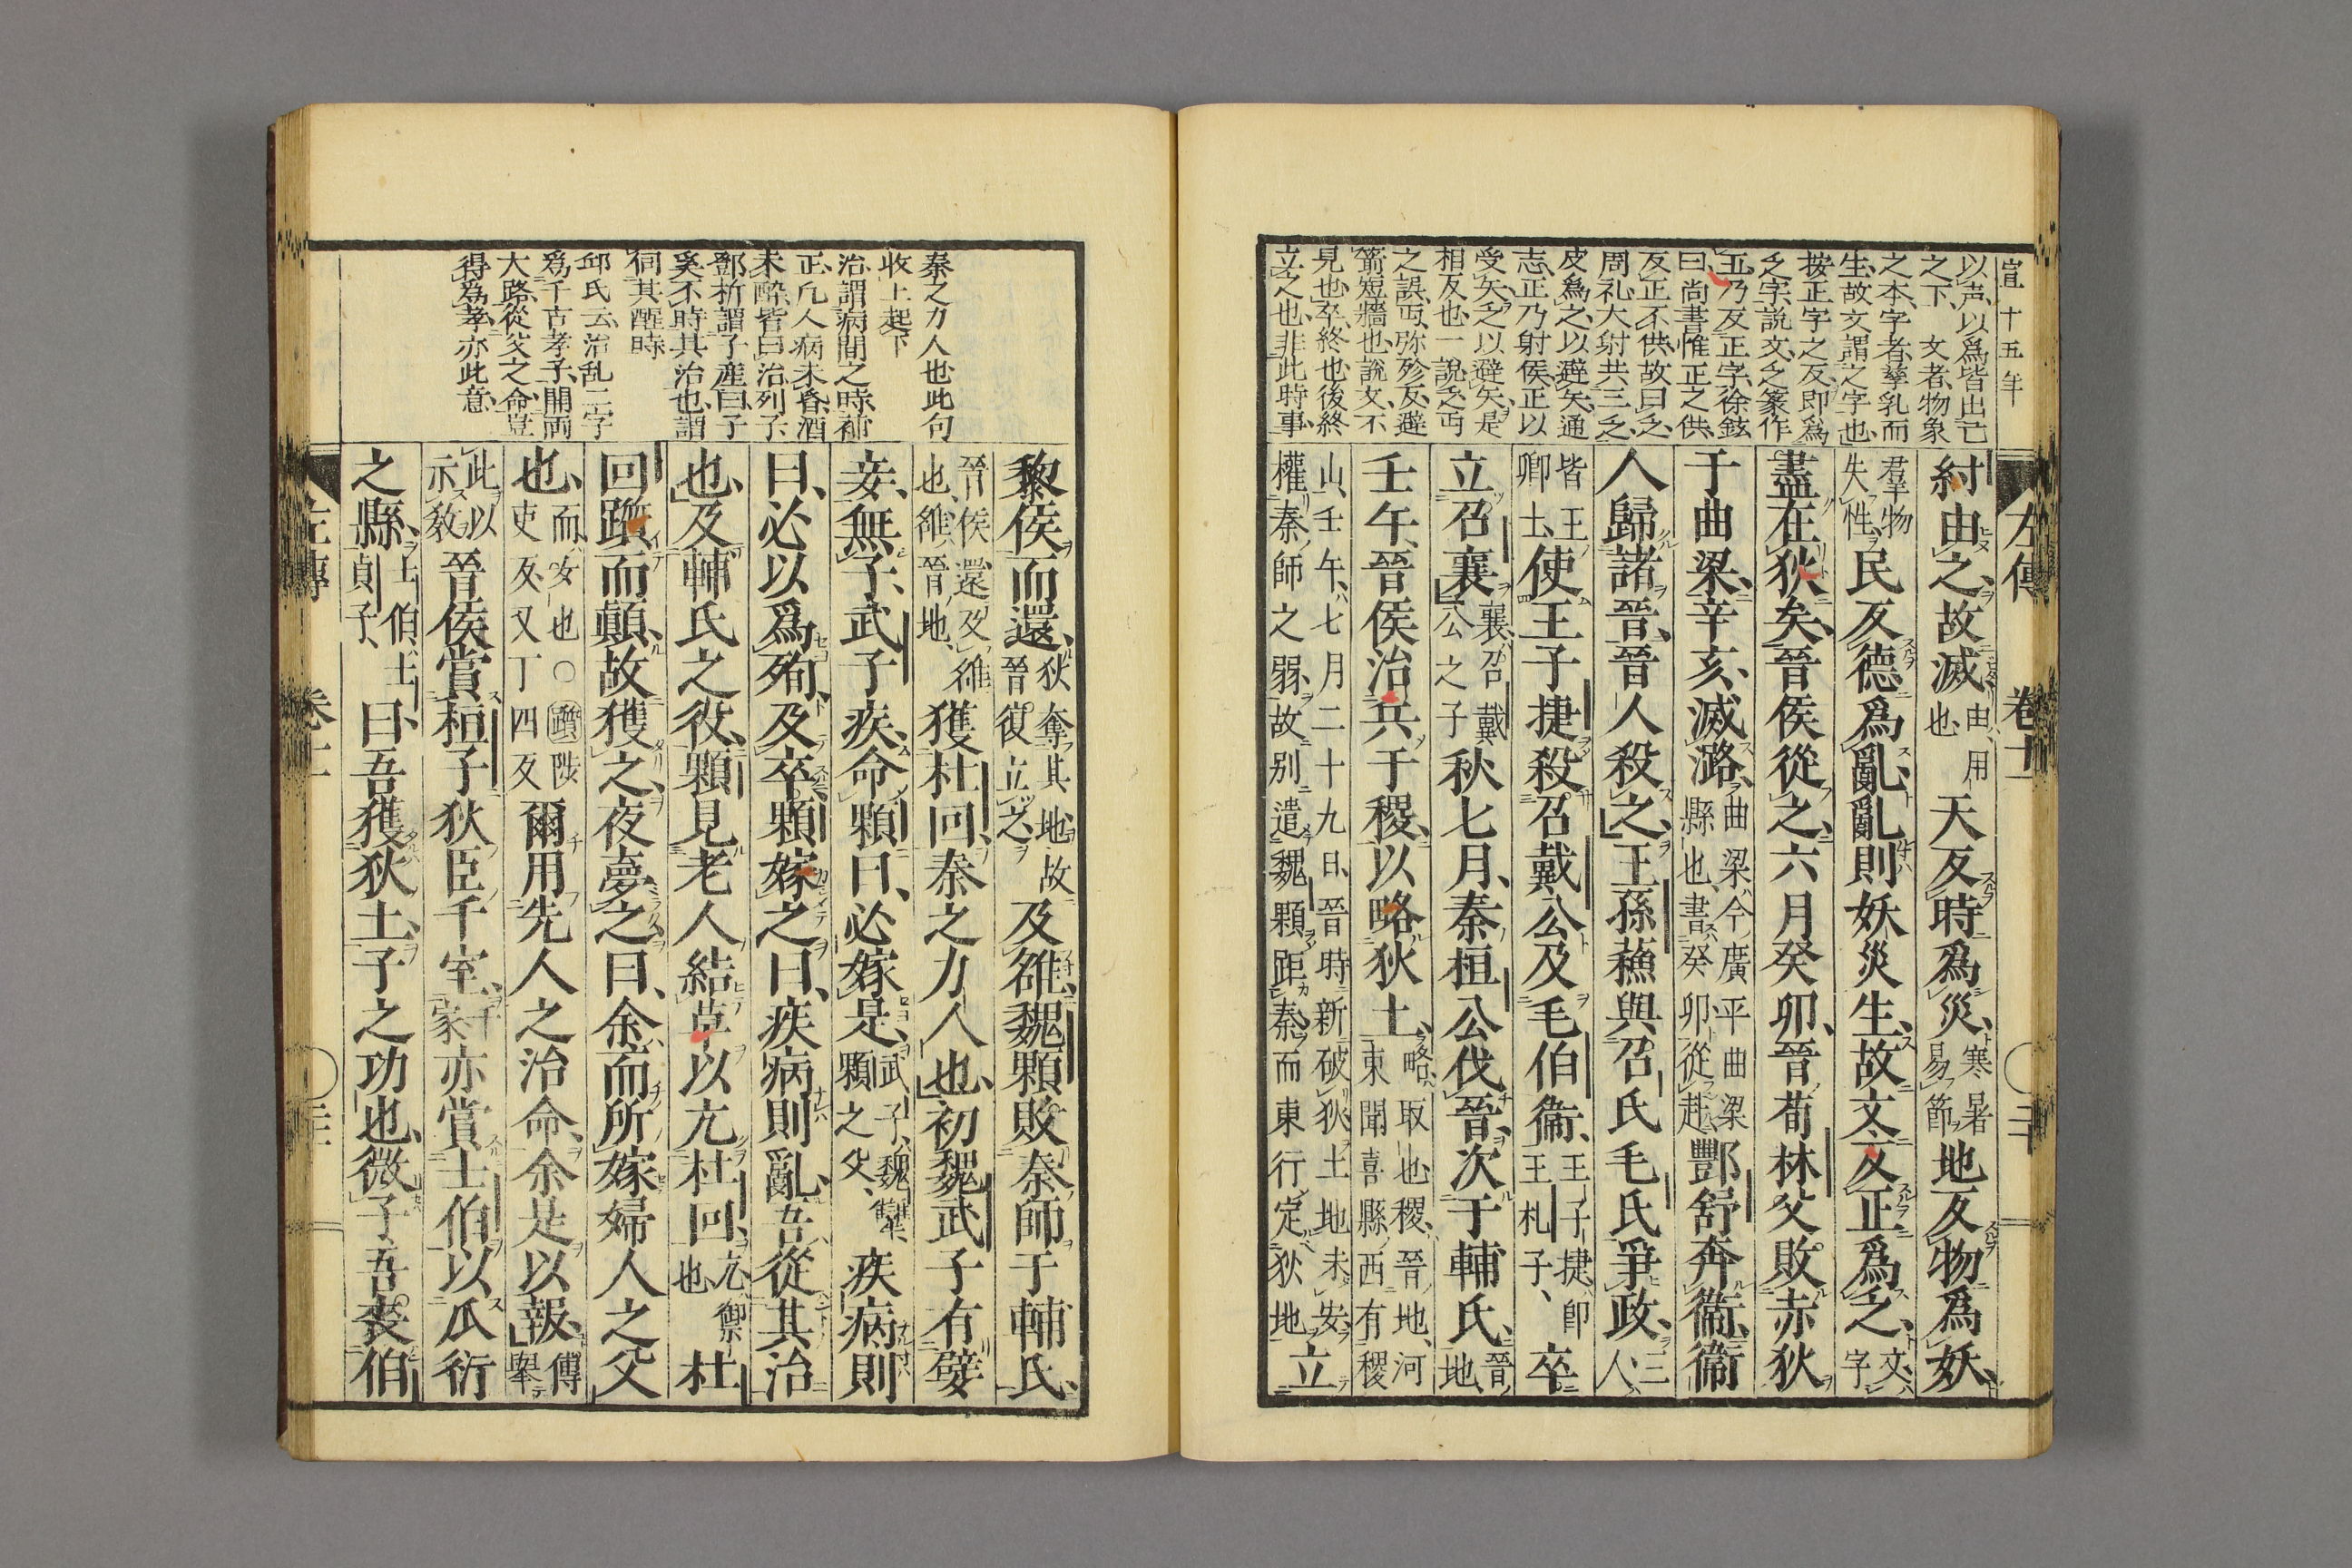 宣十五年
以声、以爲皆出亡
之下　文者、物象
之本、字者、孳乳而
生、故文謂之字也、
按正字之反、即爲
乏字、説文、乏篆作
乃反正字、徐鉉
曰、尚書惟正之供、
反正不供、故曰乏、
周礼大射共三乏、
皮爲之、以避矢、通
志、正乃射侯、正以
受矢、乏以避矢、是
相反也、一說乏丏
之誤、丏、弥殄反、避
箭短牆也、說文、不
見也、卒、終也、後終
立之也、非此時事、
左傳　卷十一
紂由之、故滅、由、用也、天反時爲災、寒暑易節、地反物爲妖、
羣物失性、民反德爲亂、亂則妖災生、故文反正爲乏、文、字、
盡在狄矣、晉侯從之、六月癸卯、晉荀林父敗赤狄
于曲梁、辛亥、滅潞、曲梁、今廣平曲梁縣也、書癸卯、從赴、酆舒奔衞、衞
人歸諸晉、晉人殺之、王孫蘇與召氏毛氏爭政、三人、
皆王卿士、使王子捷殺召戴公及毛伯衞、王子捷、即王札子、卒
立召襄、襄、召戴公之子、秋七月、秦桓公伐晉、次于輔氏、晉地、
壬午、晉侯治兵于稷、以略狄土、略、取也、稷、晉地、河東聞喜縣西有稷
山、壬午、七月二十九日、晉時新破狄、土地未安、權秦師之弱、故別遣魏顆距秦、而東行定狄地、立
秦之力人也此句
收上起下
治、謂病間之時、補
正、凡人病未昏、酒
未醉、皆曰治、列子、
鄧析謂子產曰、子
奚不時其治也、謂
伺其醒時
邱氏云、治乱二字
爲千古孝子、開両
大路、從父之命、豈
得爲孝、亦此意、
黎侯而還、狄奪其地、故晉復立之、及雒、魏顆敗秦師于輔氏、
晉侯還及雒也、雒、晉地、獲杜回、秦之力人也、初魏武子有嬖
妾、無子、武子疾、命顆曰、必嫁是、武子、魏犨、顆之父、疾病則
曰、必以爲殉、及卒、顆嫁之曰、疾病則亂、吾從其治
也、及輔氏之役、顆見老人結草以亢杜回、亢、禦也、杜
回躓而顛、故獲之、夜夢之曰、余、而所嫁婦人之父
也、而、女也○躓、陟吏反、又丁四反、爾用先人之治命、余是以報、傳舉
此以示教、晉侯賞桓子狄臣千室、千家、亦賞士伯以瓜衍
之縣、士伯、士貞子、曰、吾獲狄土、子之功也、微子、吾喪伯
左傳　卷十一